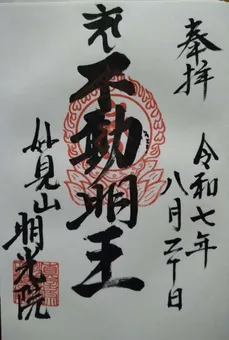 奉拝
令和七年
八月二十日
不動明王
妙見山
明光院